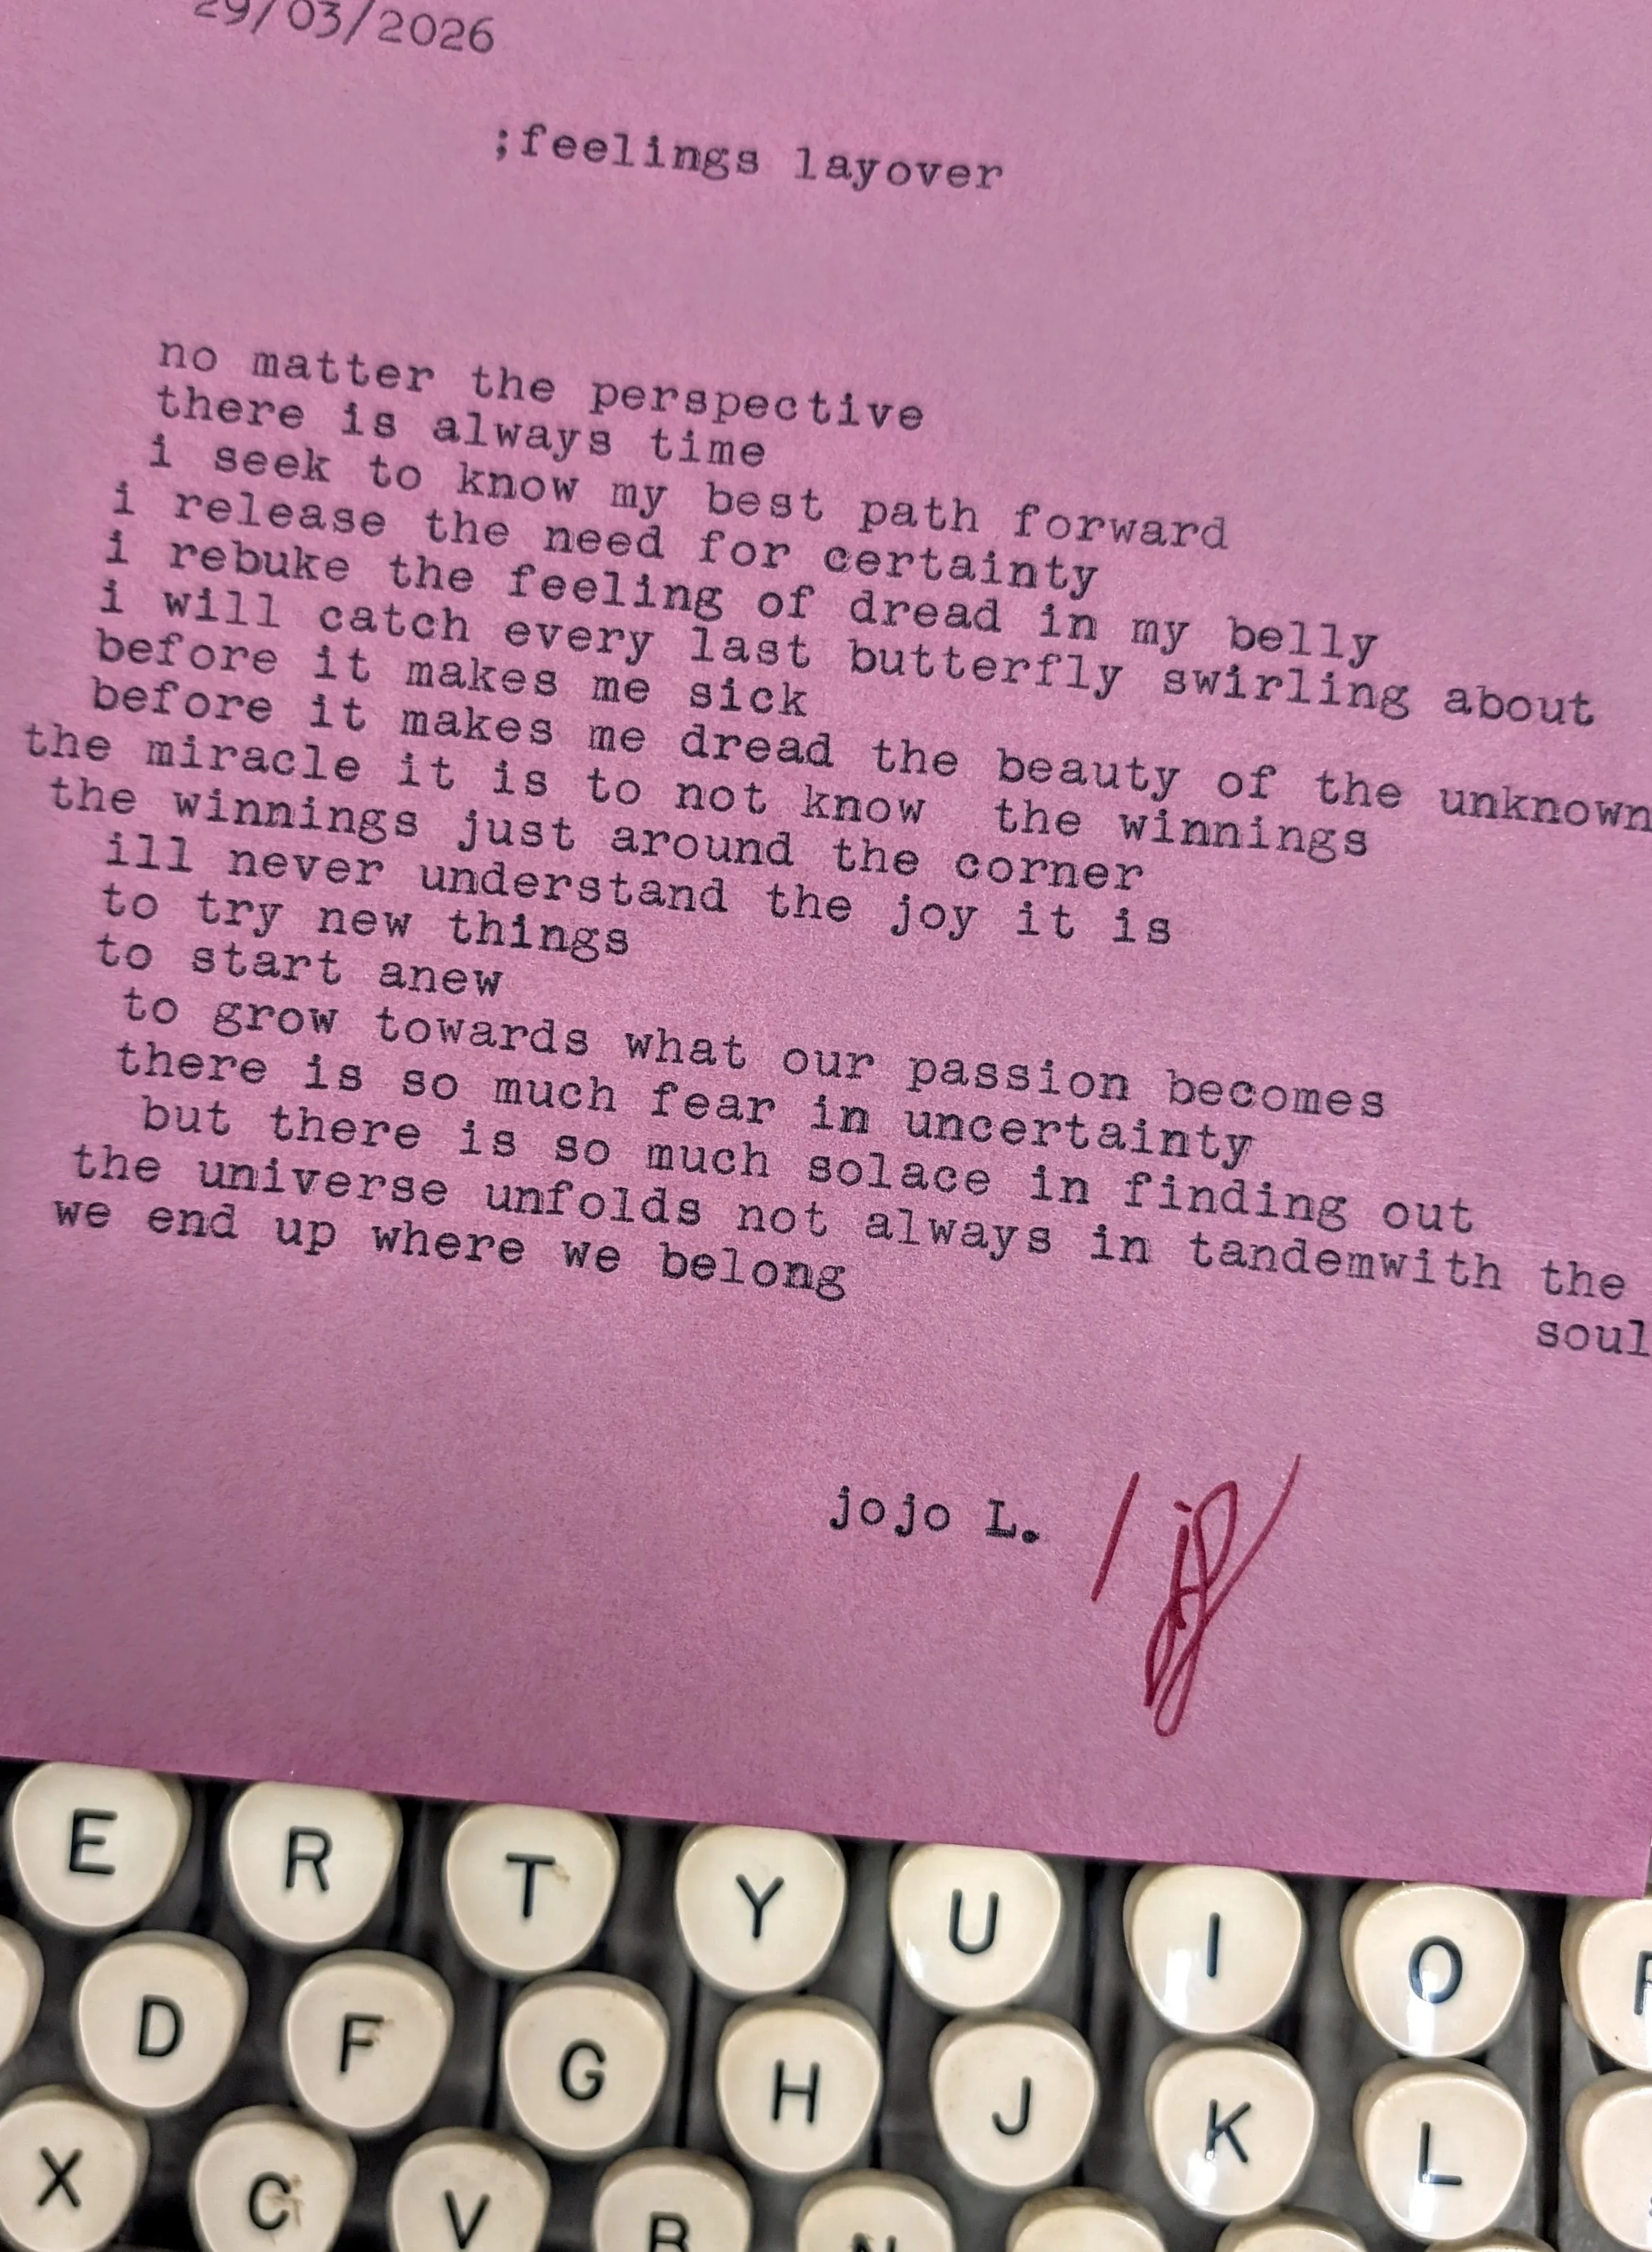 29/03/2026
;feelings layover
no matter the perspective
there is always time
i seek to know my best path forward
i release the need for certainty
i rebuke the feeling of dread in my belly
i will catch every last butterfly swirling about
before it makes me sick
before it makes me dread the beauty of the unknown
the miracle it is to not know  the winnings
the winnings just around the corner
ill never understand the joy it is
to try new things
to start anew
to grow towards what our passion becomes
there is so much fear in uncertainty
but there is so much solace in finding out
the universe unfolds not always in tandemwith the
soul
we end up where we belong
jojo L.
E R T Y U I O
D F G H J K L
X C V B N